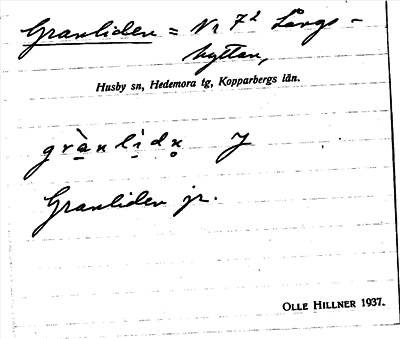 Granliden = Nr 7² Långs-
hyttan,
Husby sn, Hedemora tg, Kopparbergs län.
grànlidn J
Granliden jr.
OLLE HILLNER 1937.